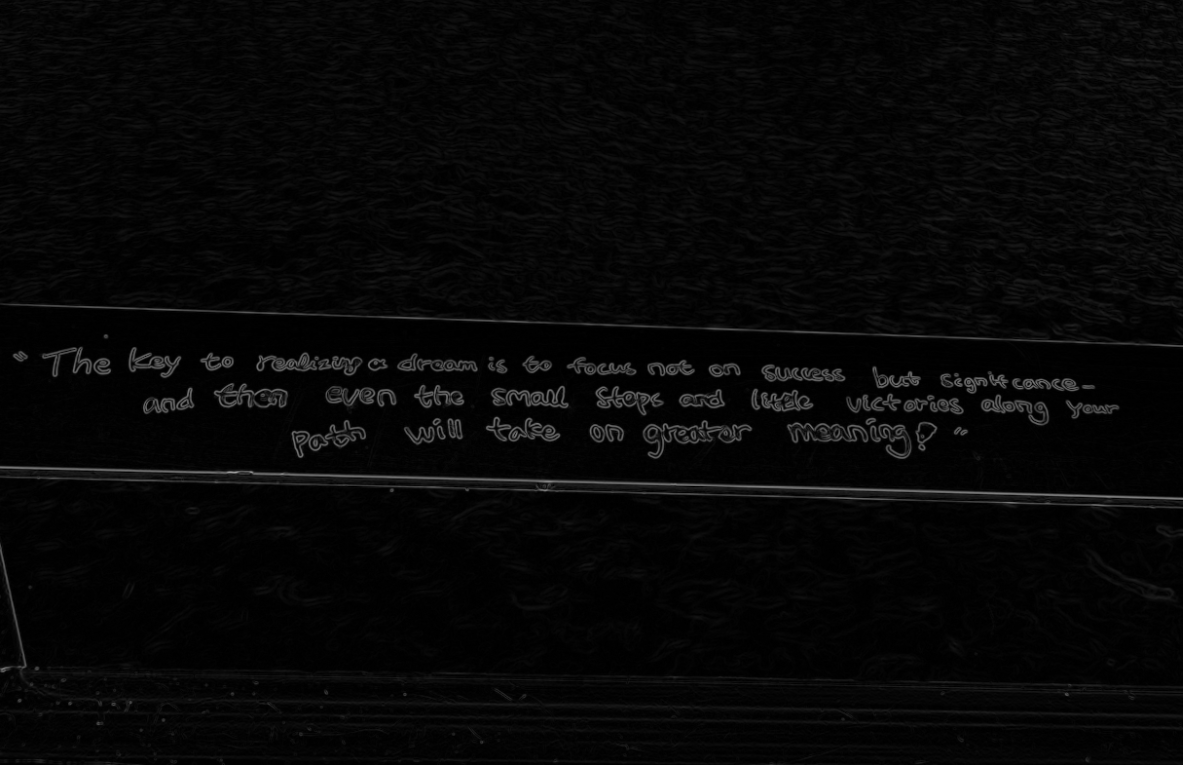 "The Key to realizing a dream is to focus not on success but significance-
and then even the small steps and little victories along your
path will take on greater meaning!"